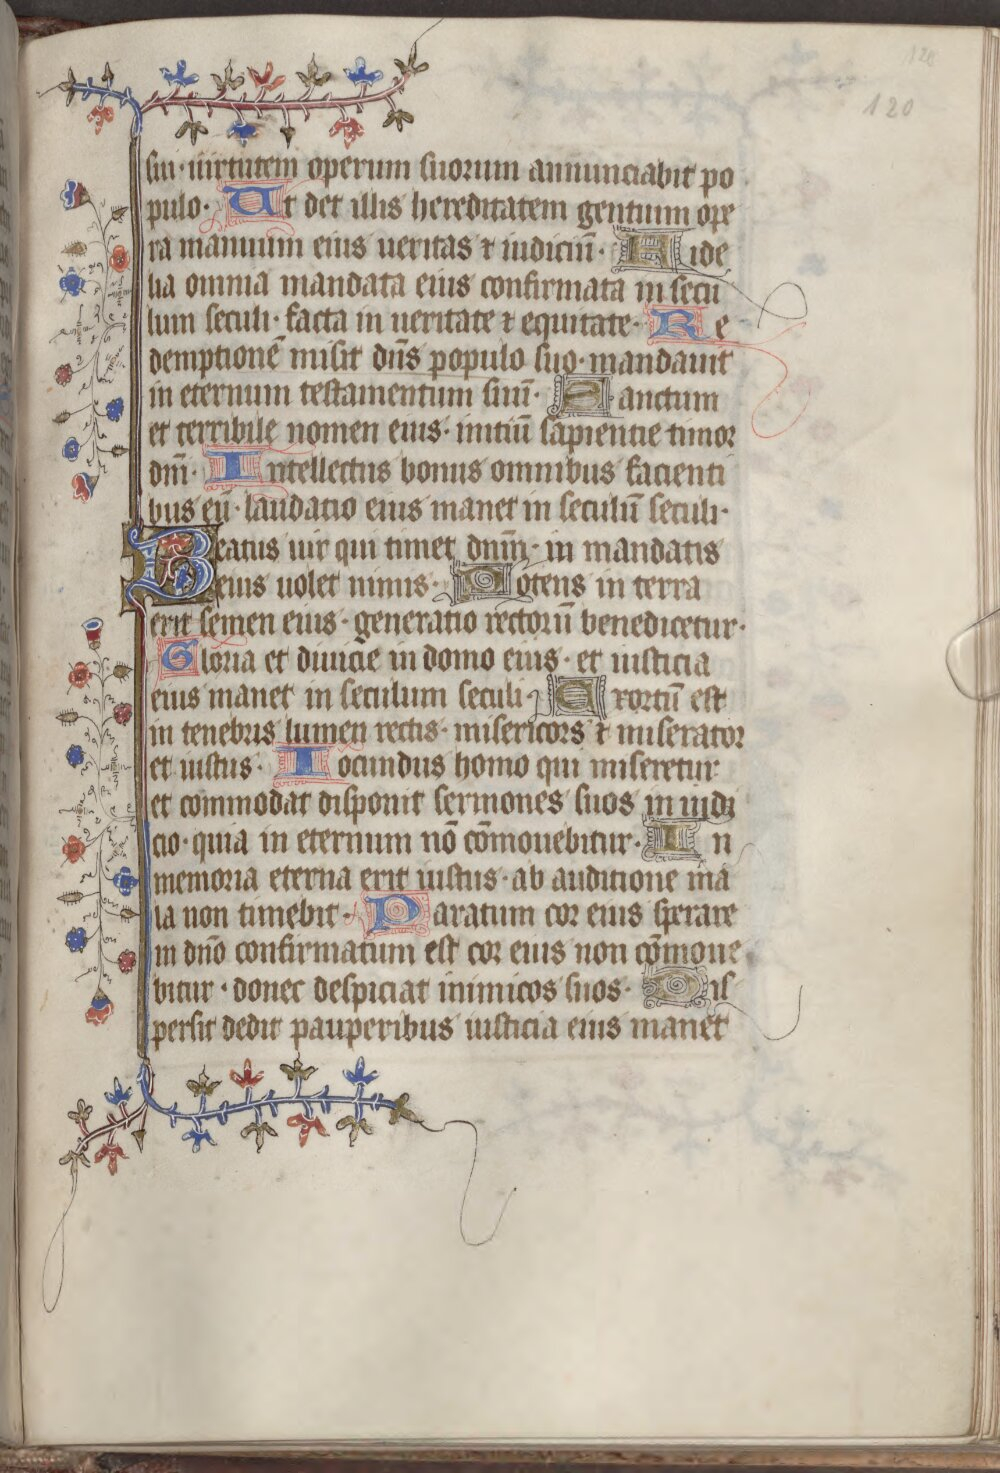 120
120
sui · uirtutem operum suorum annunciabit po
pulo · Ut det illis hereditatem gentium ope
ra manuum eius ueritas ⁊ iudiciū · Fide
lia omnia mandata eius confirmata in secu
lum seculi · facta in ueritate ⁊ equitate · Re
demptionē misit dn̄s populo suo · mandauit
in eternum testamentum suū · Sanctum
et terribile nomen eius · initiū sapientie timor
dn̄i · Intellectus bonus omnibus facienti
bus eū · laudatio eius manet in seculū seculi ·
Beatus uir qui timet dn̄m · in mandatis
eius uolet nimis · Potens in terra
erit semen eius · generatio rectorū benedicetur ·
Gloria et diuicie in domo eius · et iusticia
eius manet in seculum seculi · Exortū est
in tenebris lumen rectis · misericors ⁊ miserator
et iustus · Iocundus homo qui miseretur
et commodat disponit sermones suos in iudi
cio · quia in eternum nō cōmouebitur · In
memoria eterna erit iustus · ab auditione ma
la non timebit · Paratum cor eius sperare
in dn̄o confirmatum est cor eius non cōmoue
bitur · donec despiciat inimicos suos · Dis
persit dedit pauperibus iusticia eius manet